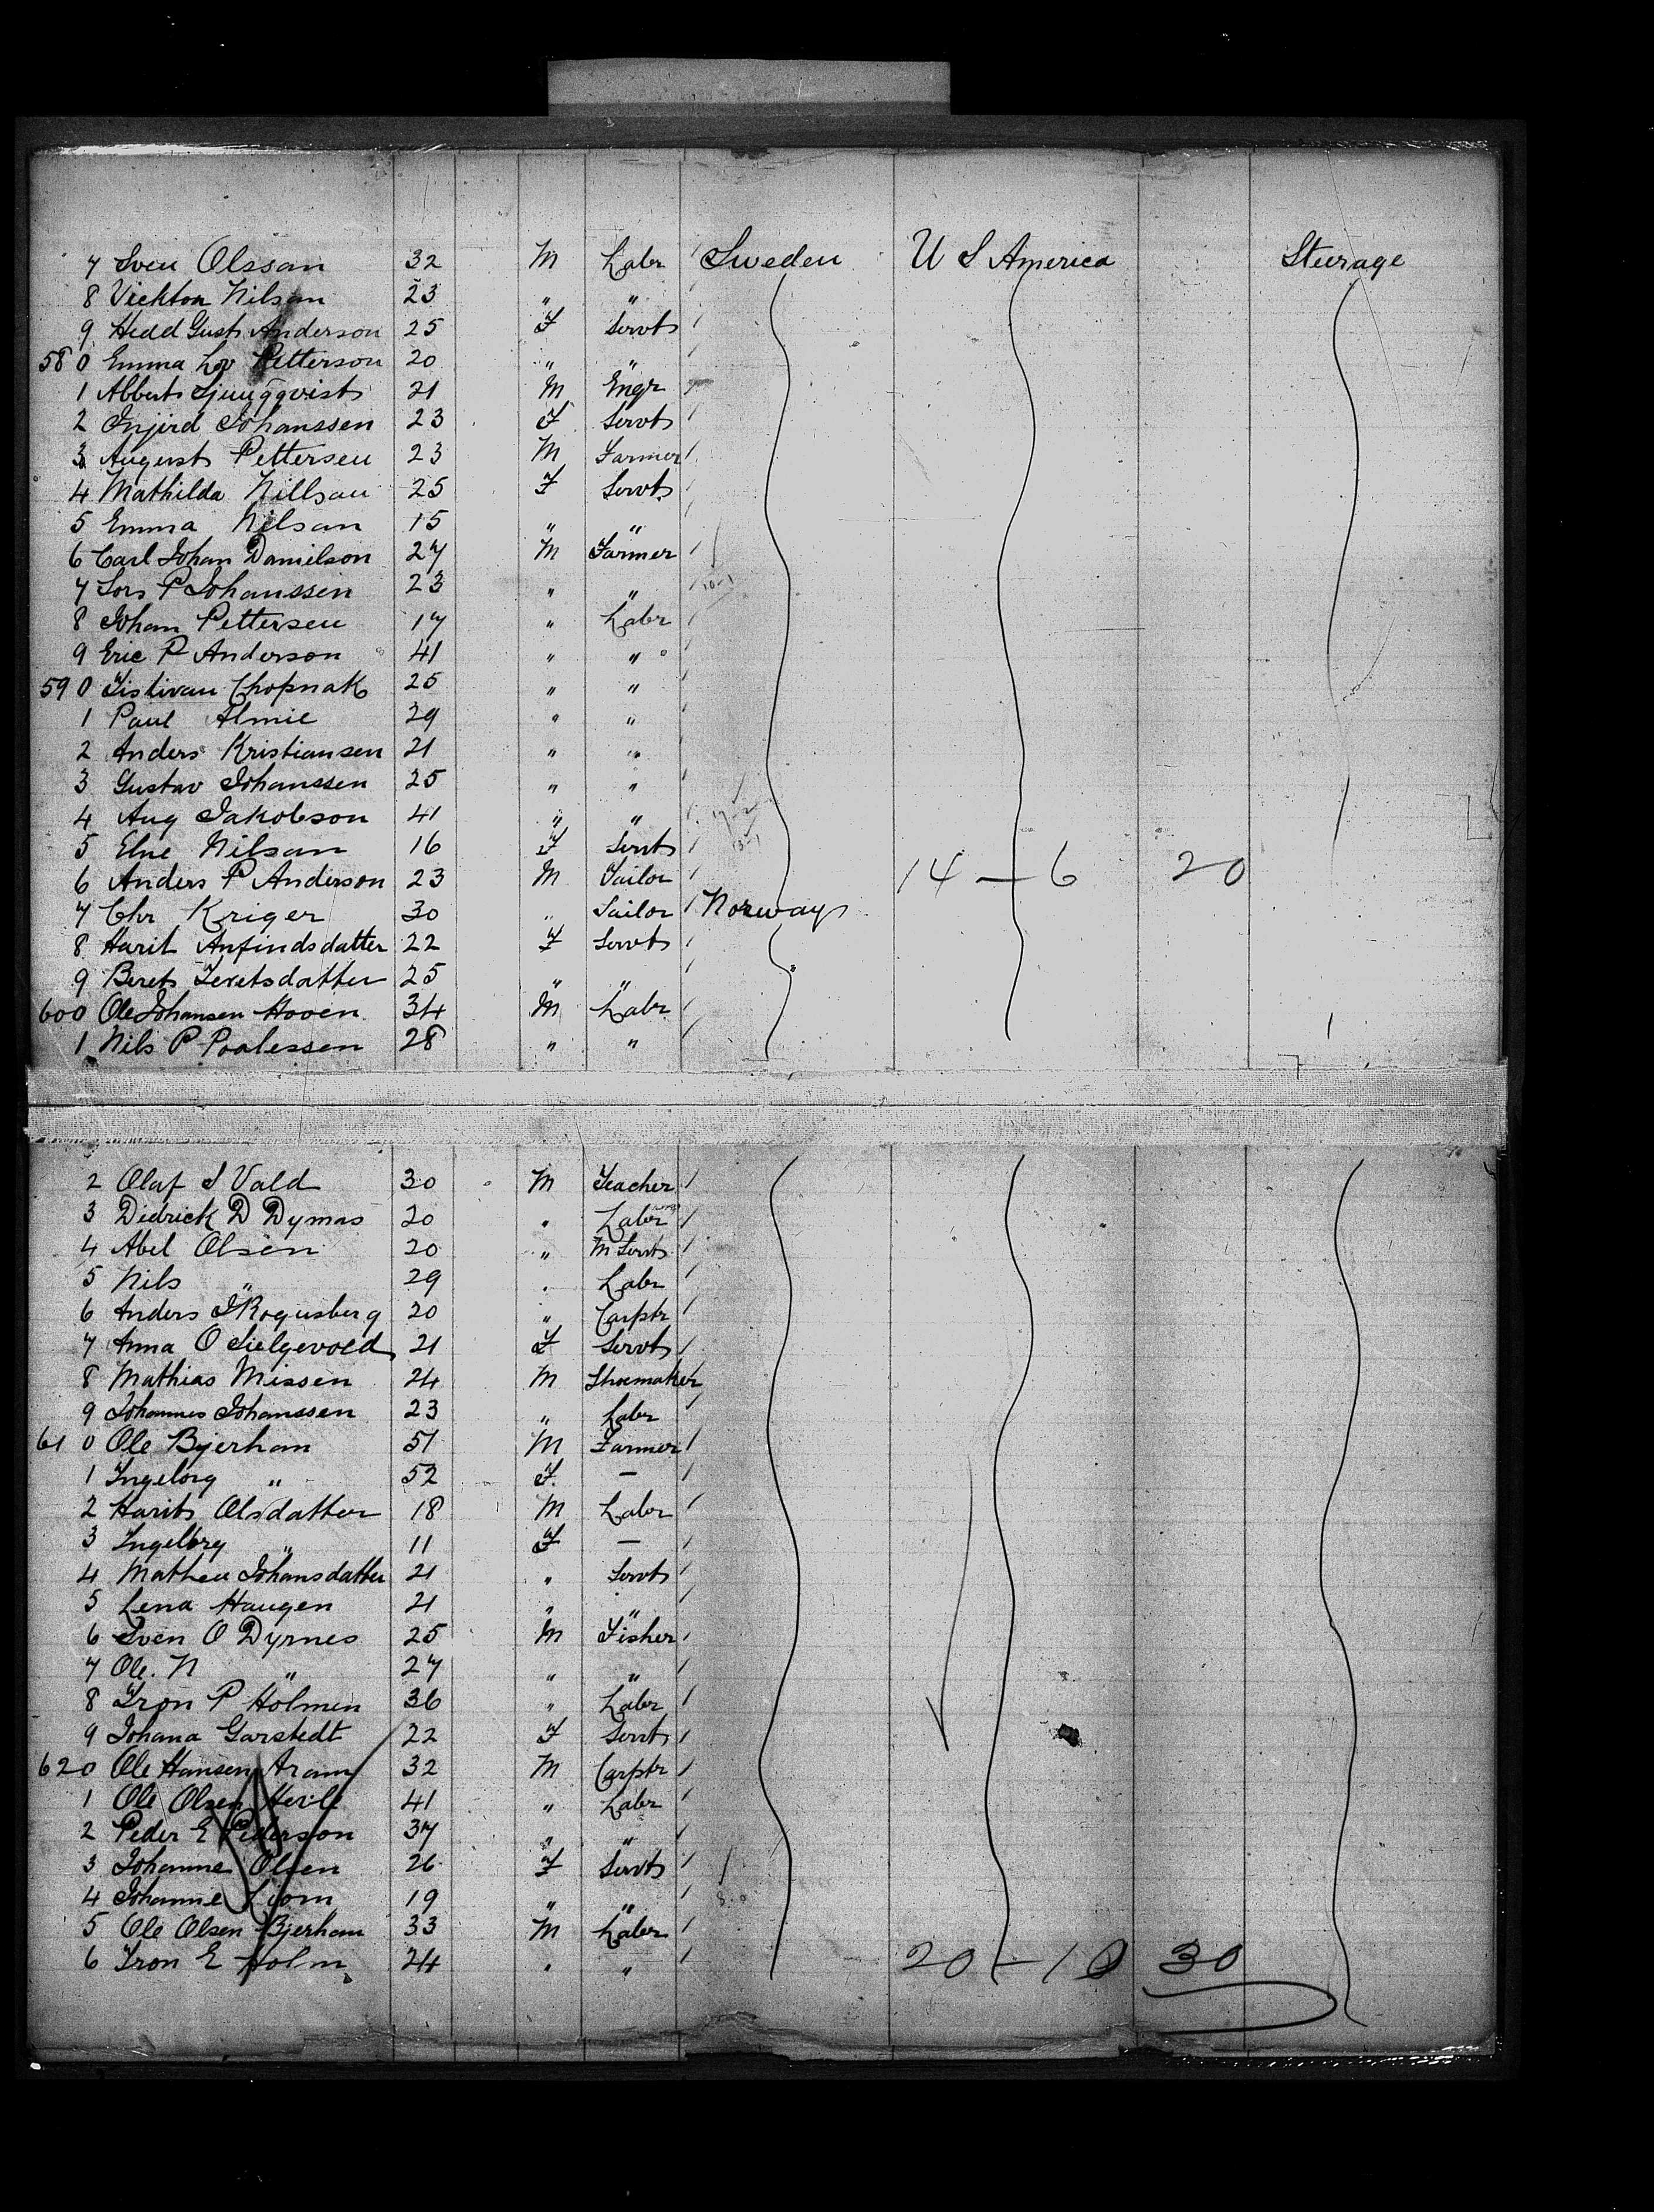 7 Sven Olsson 32 M Labr / Sweden U S America Steerage
8 Vicktor Nilson 23 " "
9 Hedd Gust Anderson 25 F Servt /
580 Emma Lov Petterson 20 " "
1 Albert Ljungqvist 21 M Engr
2 Injird Johanssen 23 F Servt /
3 August Pettersen 23 M Farmer /
4 Mathilda Nillson 25 F Servt
5 Emma Nilson 15 " "
6 Carl Johan Danielson 27 M Farmer /
7 Lars P Johanssen 23 " " / 10-1
8 Johan Pettersen 17 " Labr /
9 Eric P Anderson 41 " "
590 Tistivan Chopnak 25 " " /
1 Paul Almie 29 " "
2 Anders Kristiansen 21 " "
3 Gustav Johanssen 25 " " /
4 Aug Jakobson 41 " "
5 Elne Nilson 16 F Servt /
6 Anders P Anderson 23 M Tailor / 14 - 6 20
7 Chr Kriger 30 " Sailor / Norway
8 Harit Anfindsdatter 22 F Servt /
9 Beret Tevetsdatter 25 " " /
600 Ole Johansen Hoven 34 M Labr /
1 Nils P Poalessen 28 " " /
2 Olaf S Vald 30 M Teacher /
3 Diedrick D Dymas 20 " Labr /
4 Abel Olsen 20 " M Servt /
5 Nils " 29 " Labr /
6 Anders J Rogusberg 20 " Carptr /
7 Anna O Sielgevold 21 F Servt /
8 Mathias Missen 24 M Shoemaker
9 Johannes Johanssen 23 " Labr /
610 Ole Bjerham 51 M Farmer /
1 Ingeborg " 52 F. — /
2 Harit Olsdatter 18 M Labr /
3 Ingeborg " 11 F — /
4 Mathea Johansdatter 21 " Servt /
5 Lena Haugen 21 " " /
6 Sven O Dyrnes 25 M Fisher /
7 Ole. N " 27 " " /
8 Tron P Holmen 36 " Labr /
9 Johana Garstedt 22 F Servt /
620 Ole Hansen Aram 32 M Carptr /
1 Ole Olsen 41 " Labr /
2 Peder E Pederson 37 " " /
3 Johanne Olsen 26 F Servt /
4 Johanne 19 " " /
5 Ole Olsen Bjerham 33 M Labr /
6 Tron E Holm 24 " " / 20 - 10 30